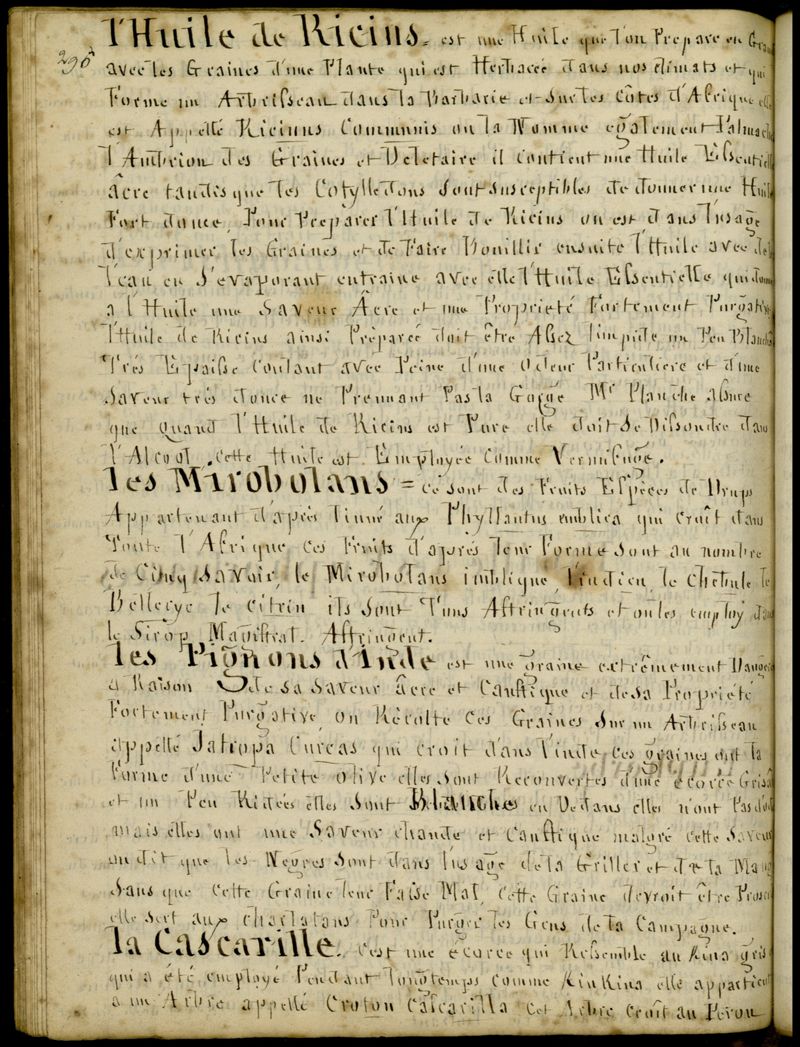 296
l'Huile de Ricins. est une Huile que l'on Prepare en Gra
avec les Graines d'une Plante qui est Herbacée dans nos climats et qui
Forme un Arbrisseau dans la Barbarie et Sur les Côtes d'Afrique elle
est Appellé Ricinus Communis on la Nomme egalement Palmach
l'Ambrion des Graines est Deletaire il contient une Huile Essentiell
âcre tandis que les Cotylledons sont susceptibles de donner une Huil
Fort douce, Pour Preparer l'Huile de Ricins on est dans l'usage
d'exprimer les Graines et de Faire Bouillir ensuite l'Huile avec de
l'eau en S'evaporant entraine avec elle l'Huile Essentielle qui donn
a l'Huile une Saveur Âcre et une Proprieté Fortement Purgative
l'Huile de Ricins ainsi Preparée doit être Assez limpide un Peu Blanch
Trés Epaisse Coulant avec Peine d'une Odeur Particuliere et d'une
Saveur trés douce ne Prennant Pas la Gorge Mr Planche Assure
que quand l'Huile de Ricins est Pure elle doit Se Dissoudre dans
l'Alcool, cette Huile est Employée Comme Vermifuge.
les Mirobolans = ce sont des Fruits Especes de Drups
Appartenant d'après linné aux Phyllantus emblica qui croît dans
Toute l'Afrique ces Fruits d'aprés leur Forme Sont au nombre
de Cinq Savoir, le Mirobolans imblique, l'indien, le Chebule le
Bellerge le citrin ils Sont Tous Astringents et on les employ dans
le Sirop Magistral Astringent.
les Pignons d'inde est une graine extrêmement Dange
a Raison de Sa Saveur âcre et Caustique et de Sa Proprieté
Fortement Purgative, on Récolte Ces Graines Sur un Arbrisseau
appellé Jatropa Curcas qui croit dans l'inde ces graines ont la
Forme d'une Petite olive elles sont Recouvertes d'une écorce Gris
et un Peu Ridées elles sont Blanches en Dedans elles n'ont Pas d'od
mais elles ont une Saveur chaude et Caustique malgré cette Saveur
on dit que les Negres Sont dans l'usage de la Griller et de la Mang
Sans que Cette Graine leur Faise Mal, Cette Graine devroit être Prosc
elle sert aux charlatans Pour Purger les Gens de la Campagne.
la Cascarille. c'est une écorce qui Ressemble au Kina gris
qui a été employé Pendant longtemps comme KinKina elle appartient
a un Arbre appellé Croton Cascarilla cet Arbre croît au Pérou